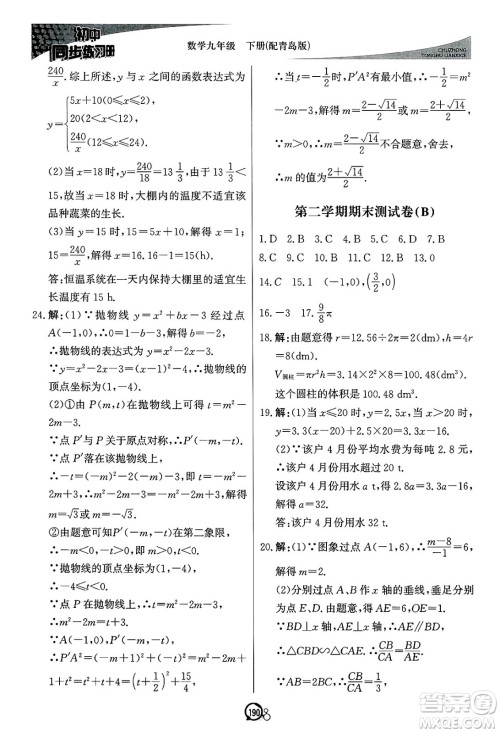 初中
同步练习册
数学九年级 下册(配青岛版)
CHUZHONG
TONGBU LIANXICE
240/x. 综上所述，y与x的函数表达式为
y={5x+10(0≤x≤2),
20(2<x≤12),
240/x(12<x≤24).
(2)当x=18时，y=240/18=13 1/3，由13 1/3<
15，故当x=18时，大棚内的温度不适宜该
品种蔬菜的生长.
(3)当y=15时，5x+10=15，解得x=1.
15=240/x，解得x=16.16-1=15(h).
答:恒温系统在一天内保持大棚里的适宜生
长温度有15 h.
24.解:(1)∵抛物线y=x²+mx-3经过点
A(-1,0)，∴0=1-m-3，解得m=-2.
∴抛物线的表达式为y=x²-2x-3.
∵y=x²-2x-3=(x-1)²-4，∴抛物线的
顶点坐标为(1,-4).
(2)①由点P(m,t)在抛物线上，得t=m²-
2m-3.
∵点P'与点P关于原点对称，
∴P'(-m,-t).
∵点P'落在抛物线上，
∴-t=(-m)²-2(-m)-3，即t=-m²-
2m+3. ∴m²-2m-3=-m²-2m+3，解得
m=-√3或m=√3.
②由题意可知P'(-m,-t)在第二象限，
∴-m<0，-t>0，即m>0，t<0.
∵抛物线的顶点坐标为(1,-4)，
∴-4≤t<0.
∵点P在抛物线上，∴t=m²-2m-3.
∴m²-2m=t+3.
∵A(-1,0)，P'(-m,-t)，
∴P'A²=(-m+1)²+(-t)²=m²-2m+
1+t²=t²+t+4=(t+1/2)²+15/4，∴当t=
-1/2时，P'A²有最小值，∴-1/2=m²
-2m-3，解得m=(2-√14)/2或m=(2+√14)/2.
∵m>0，∴m=(2-√14)/2不合题意，舍去.
∴m的值为(2+√14)/2.
第二学期期末测试卷(B)
1.D 2.B 3.A 4.D 5.B 6.D 7.D
8.C 9.B 10.B 11.B 12.B 13.C
14.C 15.1 (-1,0) (3/2,0)
16.-3 17.9/8π
18.解:由题意可得r=12.56÷2π=2(dm)，
V圆柱=πr²h=3.14×2²×8=100.48(dm³).
∴这个圆柱的体积是100.48 dm³.
19.解:(1)当x≤20时，y=2.5x;当x>20时，y=
3.3(x-20)+2.5×20=3.3x-16.
(2)∵该户4月份平均水费为每吨2.8元，
∴该户4月份用水超过20 t.
设该户4月份用水a t，2.8a=3.3a-16，解
得a=32.
答:该户4月份用水32 t.
20.解:(1)∵图象过点A(-1,6)，∴(m-8)/(-1)=
6，∴m=2.
(2)分别过点A,B作x轴的垂线，垂足为点E,D.
由题意得，AE=6，OE=1，即A(-1,6).
∵BD⊥x轴，AE⊥x轴，∴AE∥BD.
∴△CBD∽△CAE，∴CB/CA=BD/AE.
∵AB=2BC，∴CB/CA=1/3，∴1/3=BD/6，
190